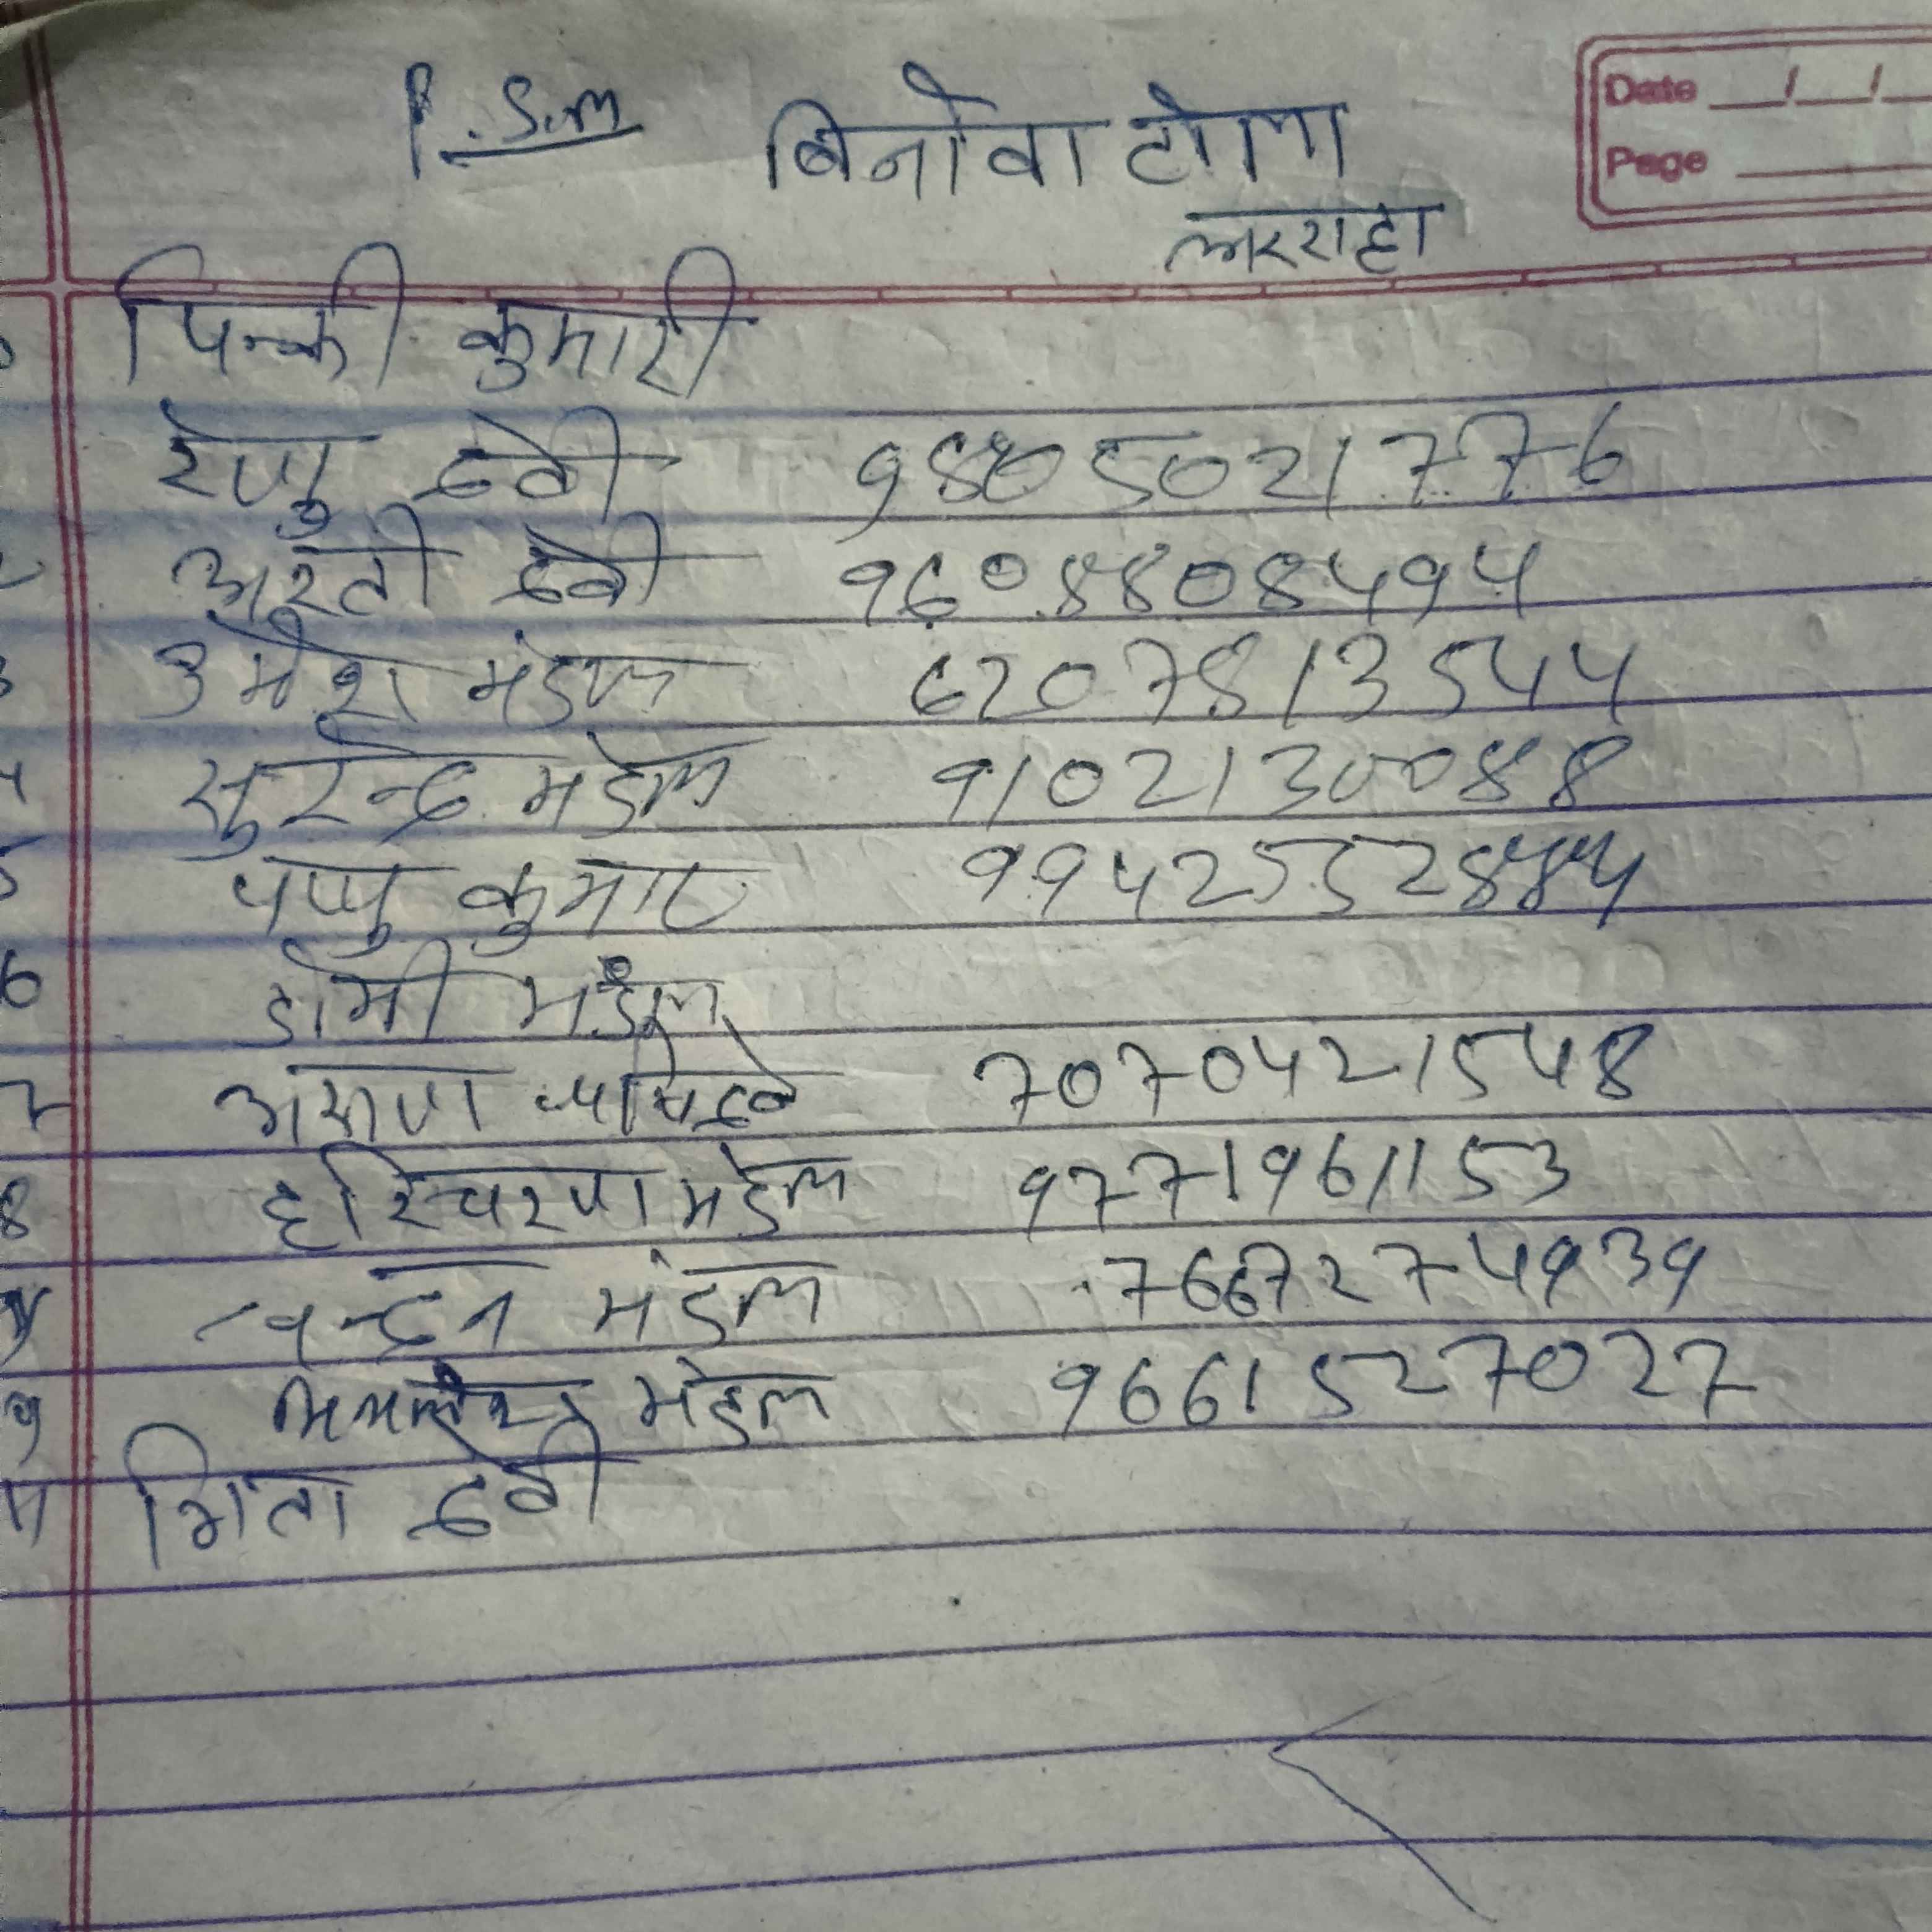 P.S.M बिनोवा टोला
लरराहा
Date __/__/__
Page
पिन्की कुमारी
रेणु देवी 98805021776
2 अरती देवी 9608808494
3 उमेश मंडल 6207813544
4 सुरेन्द्र मंडेल 9102130088
5 पप्पु कुमार 9942552884
6 डोमी मंडेल
7 अरूण 7070421548
8 हरिचरण मंडेल 9771961153
चन्दन मंडल 7667274939
9 मंडेल 9661527027
11 गिता देवी